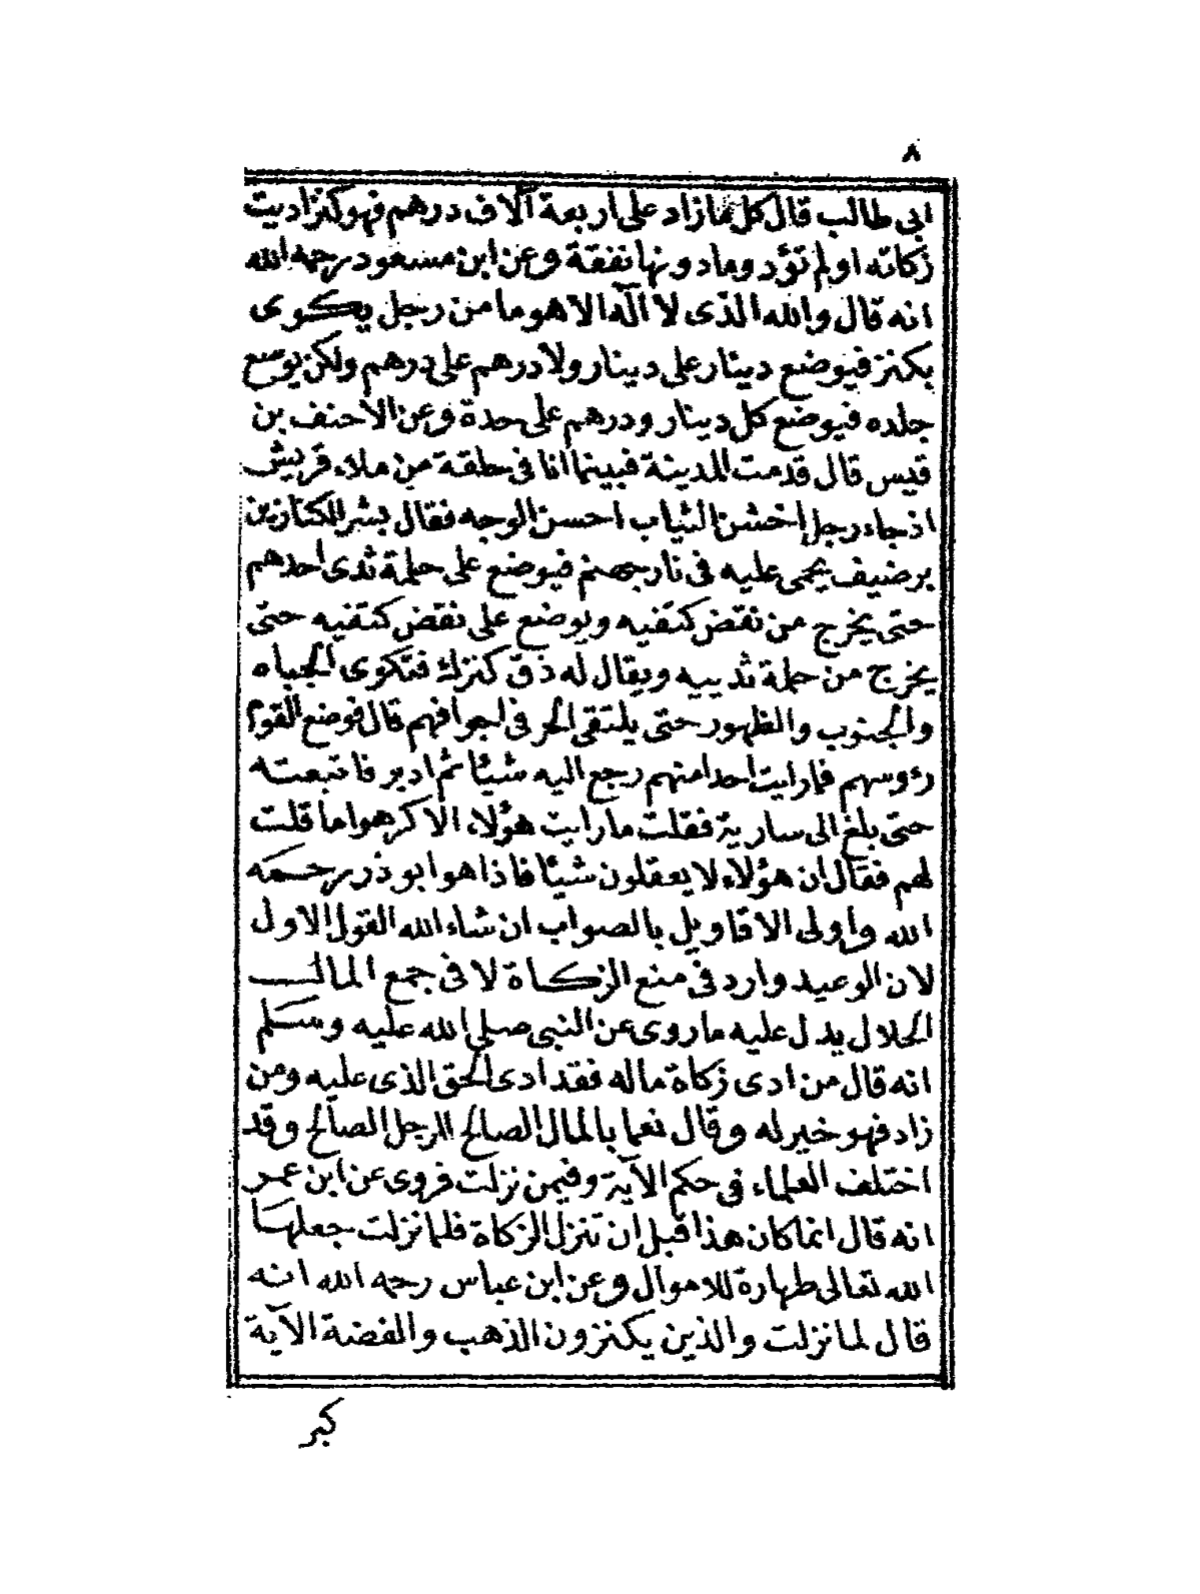 ٨
ابى طالب قال كل مازاد على اربعة آلاف درهم فهو كنز اديت
زكاته اولم تؤد وما دونها نفقة وعن ابن مسعود رحمه الله
انه قال والله الذى لا اله الا هو ما من رجل يكوى
بكنز فيوضع دينار على دينار ولا درهم على درهم ولكن يوسع
جلده فيوضع كل دينار ودرهم على حدة وعن الاحنف بن
قيس قال قدمت المدينة فبينما انا فى حلقة من ملاء قريش
اذ جاء رجل اخشن الثياب احسن الوجه فقال بشر الكنازين
برضيف يحمى عليه فى نار جهنم فيوضع على حلمة ثدى احدهم
حتى يخرج من نقض كتفيه ويوضع على نقض كتفيه حتى
يخرج من حملة ثدييه ويقال له ذق كنزك فتكوى الجباه
والجنوب والظهور حتى يلتقى الحر فى اجوافهم قال فوضع القوم
رؤوسهم فما رايت احدا منهم رجع اليه شيئا ثم ادبر فاتبعته
حتى بلغ الى سارية فقلت ما رايت هؤلاء الا كرهوا ما قلت
لهم فقال ان هؤلاء لا يعقلون شيئا فاذا هو ابو ذر رحمه
الله واولى الاقاويل بالصواب ان شاء الله القول الاول
لان الوعيد وارد فى منع الزكاة لا فى جمع المال
الحلال يدل عليه ما روى عن النبى صلى الله عليه وسلم
انه قال من ادى زكاة ماله فقد ادى الحق الذى عليه ومن
زاد فهو خير له وقال نعما بالمال الصالح للرجل الصالح وقد
اختلف العلماء فى حكم الآية وفيمن نزلت فروى عن ابن عمر
انه قال انما كان هذا قبل ان تنزل الزكاة فلما نزلت جعلها
الله تعالى طهارة للاموال وعن ابن عباس رحمه الله انه
قال لما نزلت والذين يكنزون الذهب والفضة الآية
كبر